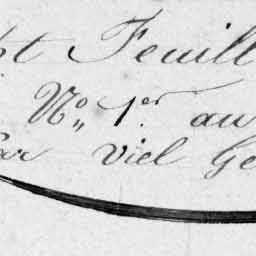 ht Feuill
N° 1er au
Par Viel Ge